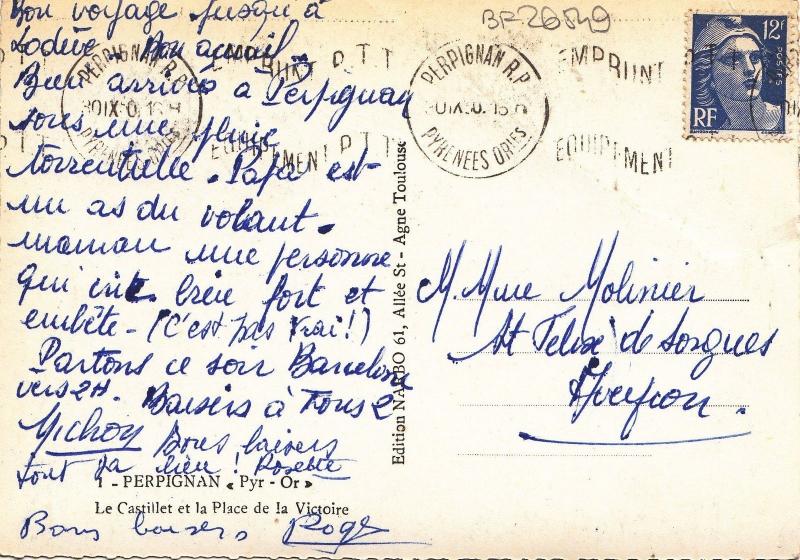 Bon voyage jusqu'à
Lodève. Bon accueil
Bien arrivés à Perpignan
sous une pluie
torrentielle. Papa est
un as du volant.
maman une personne
qui crie bien fort et
embête - (C'est pas vrai!)
Partons ce soir Barcelone
vers 2H. Baisers à Tous 2
Michou Bons baisers
tout va bien! Rosette
1 - PERPIGNAN « Pyr - Or »
Le Castillet et la Place de la Victoire
Bons baisers Roge
Edition NARBO 61, Allée St - Agne Toulouse
BF 26849
PERPIGNAN R.P
PYRENEES ORIES
EMPRUNT P.T.T
EQUIPEMENT
PERPIGNAN R.P
PYRENEES ORIES
EMPRUNT
EQUIPEMENT
12F
POSTES
RF
M. Mme Molinier
St Felix de Sorgues
Aveyron.